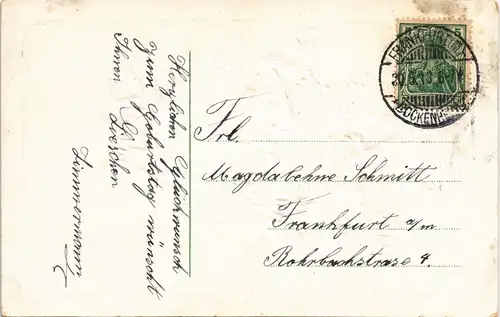 Herzlichen Glückwunsch
zum Geburtstag wünscht
Ihnen
Loeschen
Zimmermann
Frl.
Magdalehne Schmitt
Frankfurt a/m
Rohrbachstrase 4.
5
FRANKFURT
BOCKENHEIM